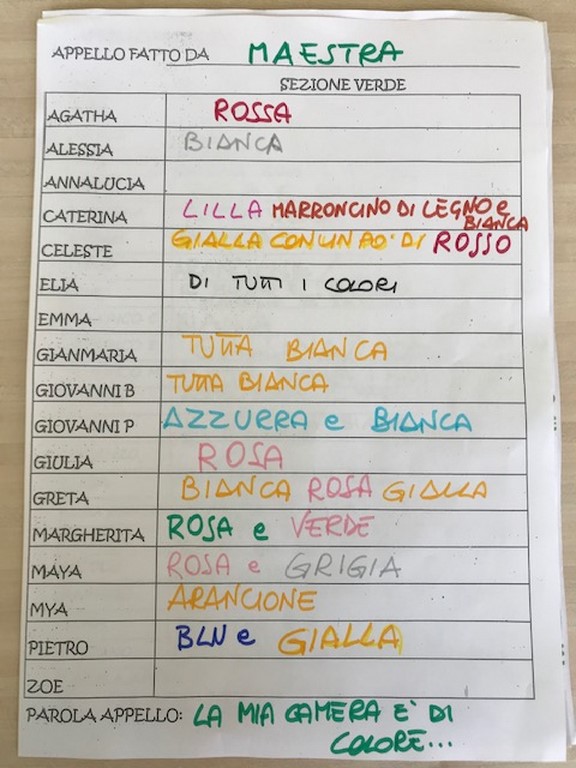 APPELLO FATTO DA MAESTRA
SEZIONE VERDE
AGATHA ROSSA
ALESSIA BIANCA
ANNALUCIA
CATERINA LILLA MARRONCINO DI LEGNO e
BIANCA
CELESTE GIALLA CON UN PO' DI ROSSO
ELIA DI TUTTI I COLORI
EMMA
GIANMARIA TUTTA BIANCA
GIOVANNI B TUTTA BIANCA
GIOVANNI P AZZURRA e BIANCA
GIULIA ROSA
GRETA BIANCA ROSA GIALLA
MARGHERITA ROSA e VERDE
MAYA ROSA e GRIGIA
MYA ARANCIONE
PIETRO BLU e GIALLA
ZOE
PAROLA APPELLO: LA MIA CAMERA E' DI
COLORE...